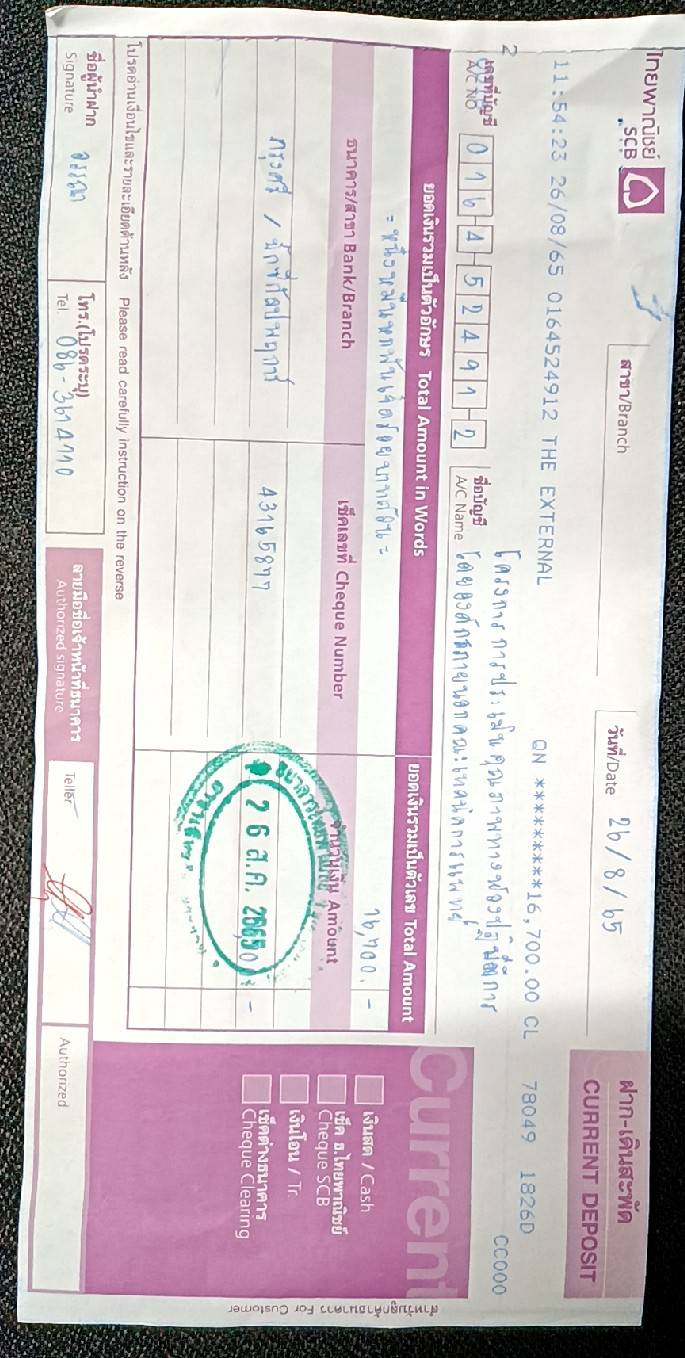 ไทยพาณิชย์
SCB
3
สาขา/Branch
วันที่/Date 26/8/65
ฝาก-เดินสะพัด
CURRENT DEPOSIT
11:54:23 26/08/65 0164524912 THE EXTERNAL QN *********16,700.00 CL 78049 1826D
CC000
2
เลขที่บัญชี
A/C NO. 016-4-52491-2
ชื่อบัญชี
A/C Name
โครงการการประเมินคุณภาพทางห้องปฏิบัติการ
โดยองค์กรภายนอกคณะเทคนิคการแพทย์
ยอดเงินรวมเป็นตัวอักษร Total Amount in Words
ยอดเงินรวมเป็นตัวเลข Total Amount
= หนึ่งหมื่นหกพันเจ็ดร้อยบาทถ้วน =
16,700. -
ธนาคาร/สาขา Bank/Branch
เช็คเลขที่ Cheque Number
จำนวนเงิน Amount
กรุงศรี /
43165877
-
26 ส.ค. 2565
Current
เงินสด / Cash
เช็ค ธ.ไทยพาณิชย์
Cheque SCB
เงินโอน / Tr.
เช็คต่างธนาคาร
Cheque Clearing
สำหรับลูกค้าธนาคาร For Customer
โปรดอ่านเงื่อนไขและรายละเอียดด้านหลัง Please read carefully instruction on the reverse
ชื่อผู้นำฝาก
Signature
โทร.(โปรดระบุ)
Tel. 086-3614710
ลายมือชื่อเจ้าหน้าที่ธนาคาร
Authorized signature
Teller
Authorized